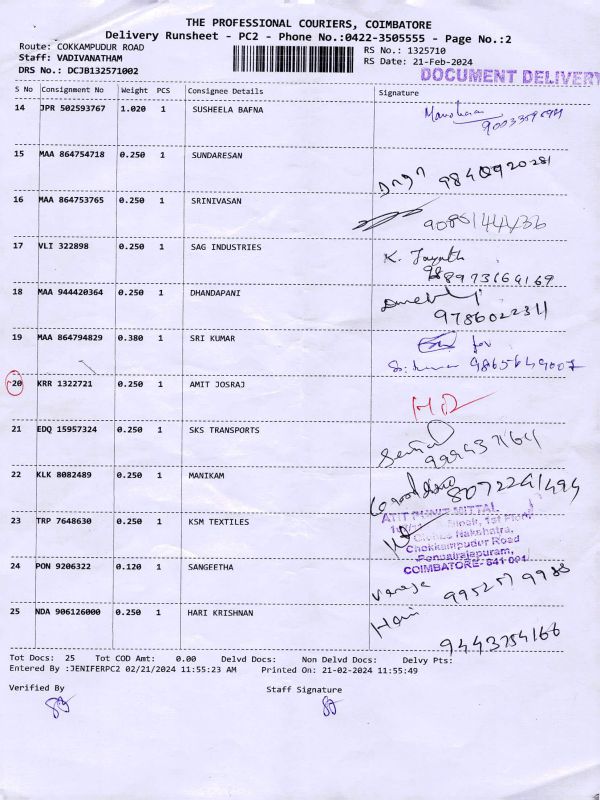 THE PROFESSIONAL COURIERS, COIMBATORE
Delivery Runsheet - PC2 - Phone No.:0422-3505555 - Page No.:2
Route: COKKAMPUDUR ROAD
Staff: VADIVANATHAM
DRS No.: DCJB132571002
RS No.: 1325710
RS Date: 21-Feb-2024
DOCUMENT DELIVERY
S No Consignment No Weight PCS Consignee Details Signature
14 JPR 502593767 1.020 1 SUSHEELA BAFNA
15 MAA 864754718 0.250 1 SUNDARESAN
16 MAA 864753765 0.250 1 SRINIVASAN
17 VLI 322898 0.250 1 SAG INDUSTRIES
18 MAA 944420364 0.250 1 DHANDAPANI
9786022311
19 MAA 864794829 0.380 1 SRI KUMAR
for
9865649007
20 KRR 1322721 0.250 1 AMIT JOSRAJ
21 EDQ 15957324 0.250 1 SKS TRANSPORTS
22 KLK 8082489 0.250 1 MANIKAM
8072241494
23 TRP 7648630 0.250 1 KSM TEXTILES
MITTAL
1st Floor
Nakshatra,
Chokkampudur Road
COIMBATORE- 641 001
24 PON 9206322 0.120 1 SANGEETHA
9952579988
25 NDA 906126000 0.250 1 HARI KRISHNAN
Hari
9443754166
Tot Docs: 25 Tot COD Amt: 0.00 Delvd Docs: Non Delvd Docs: Delvy Pts:
Entered By :JENIFERPC2 02/21/2024 11:55:23 AM Printed On: 21-02-2024 11:55:49
Verified By Staff Signature